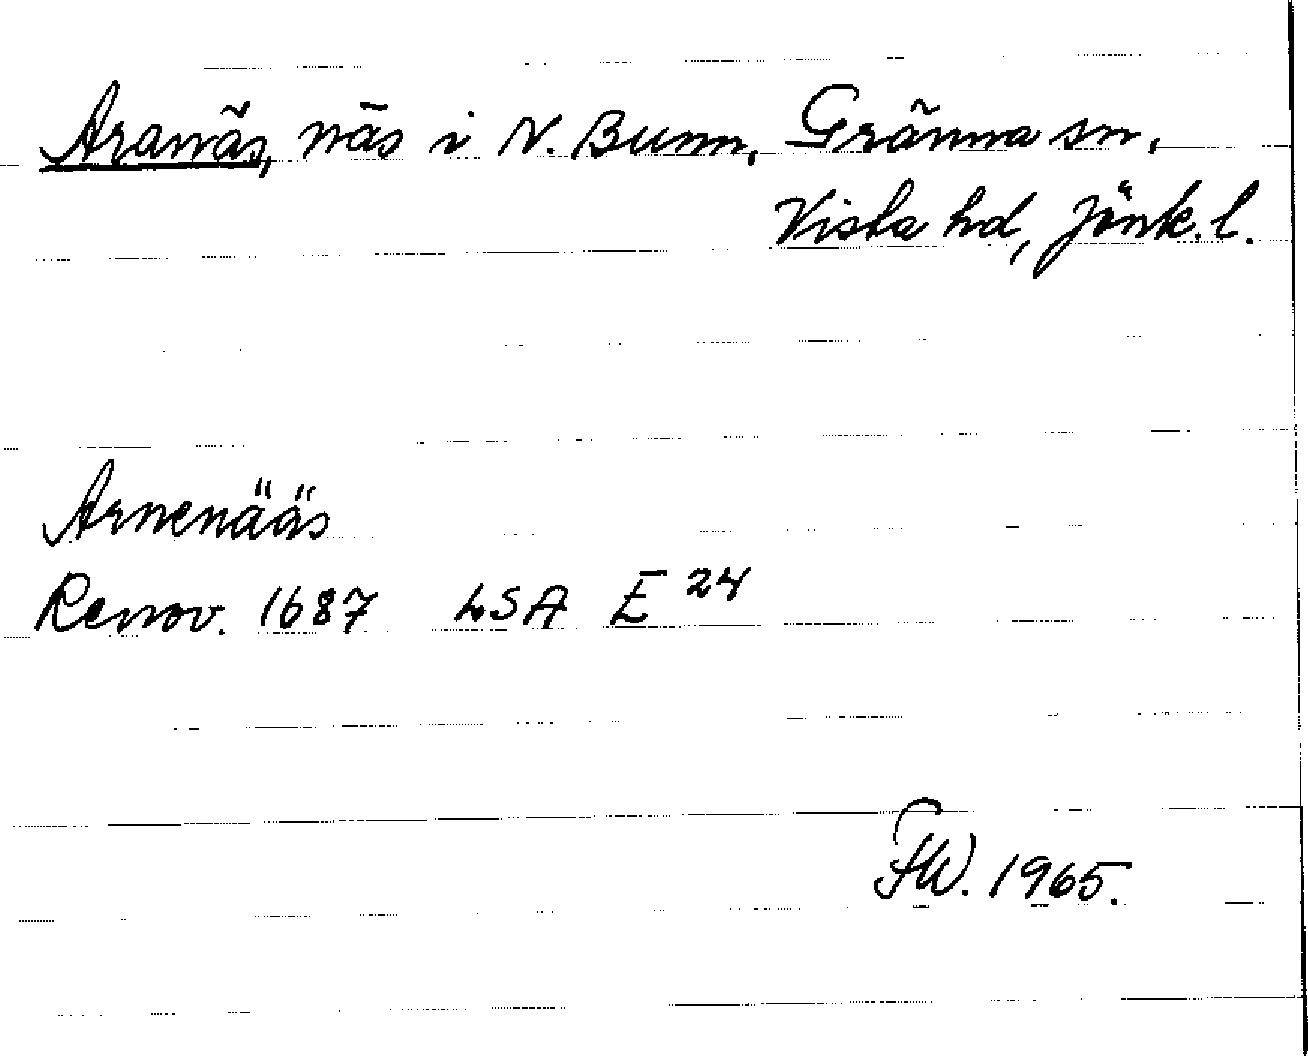 Aranäs, näs i N. Bunn, Gränna sn,
Vista hd, Jönk. l.
Arnenääs
Renov. 1687 LSA E 24
FW. 1965.